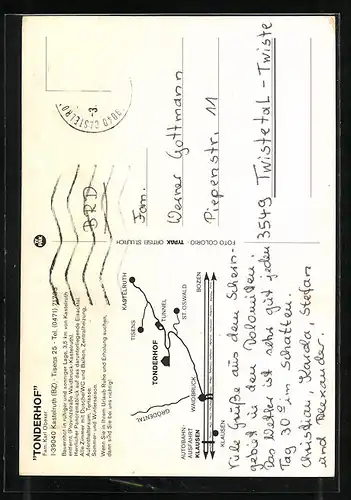 "TONDERHOF"
Fam. Karl Oberer
I-39040 Kastelruth (BZ) - Tisens 25 - Tel. (0471)
Bauernhof in ruhiger und sonniger Lage, 3,5 km von Kastelruth
Alle Zimmer mit Dusche/WC und Balkon, Zentralheizung,
Aufenthaltsraum,
Sommer- und Wintersaison.
Wenn Sie in Ihrem Urlaub Ruhe und Erholung suchen,
dann sind Sie bei uns richtig!
KASTELRUTH
TISENS
TUNNEL
ST. OSWALD
TONDERHOF
BOZEN
GRÖDENTAL
WAIDBRUCK
AUTOBAHN-
AUSFAHRT
KLAUSEN
KLAUSEN
Viele Grüße aus dem Schlern-
gebiet in den Dolomiten.
Das Wetter ist sehr gut jeden
Tag 30° im Schatten.
Christian, Carola, Stefan
und Alexander.
FOTO COLORIO - TYPAK - ORTISEI ST. ULRICH
BRD
Fam.
Werner Gottmann
Piepenstr. 11
3549 Twistetal - Twiste